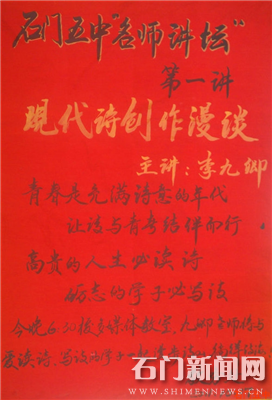 石门五中"名师讲坛"
第一讲
现代诗创作漫谈
主讲:李九卿
青春是充满诗意的年代
让诗与青春结伴而行
高贵的人生必读诗
励志的学子必写诗
今晚6:30校多媒体教室,九卿老师将与
爱读诗、写诗的学子一起
石门新闻网
WWW.SHIMENNEWS.CN